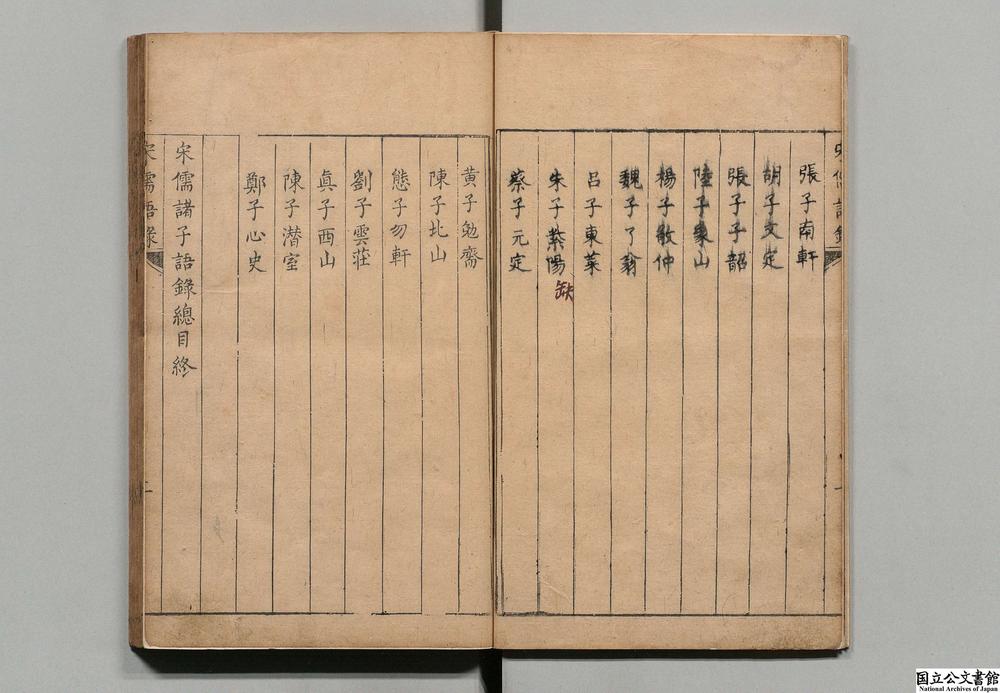 張子南軒
胡子文定
張子子韶
陸子象山
楊子敬仲
魏子了翁
呂子東莱
朱子紫陽
缺
蔡子元定
黄子勉齋
陳子北山
態子勿軒
劉子雲莊
眞子西山
陳子潜室
鄭子心史
宋儒諸子語錄總目終
宋儒語錄
二
国立公文書館
National Archives of Japan